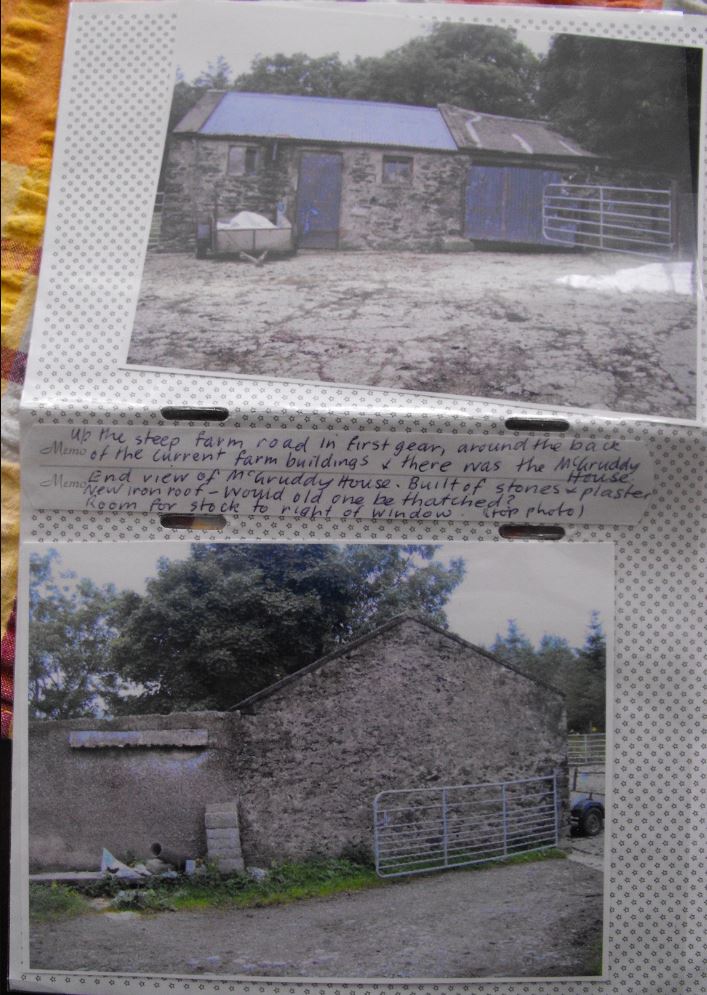 Up the steep farm road in first gear, around the back
Memo of the current farm buildings & there was the McGruddy
House.
Memo End view of McGruddy House. Built of stones & plaster
New iron roof - Would old one be thatched?
Room for stock to right of window. (top photo)